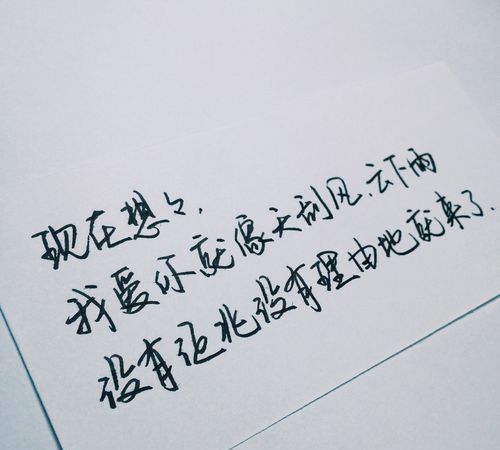 现在想々，
我爱你就像天刮风、云下雨
没有征兆没有理由地就来了.